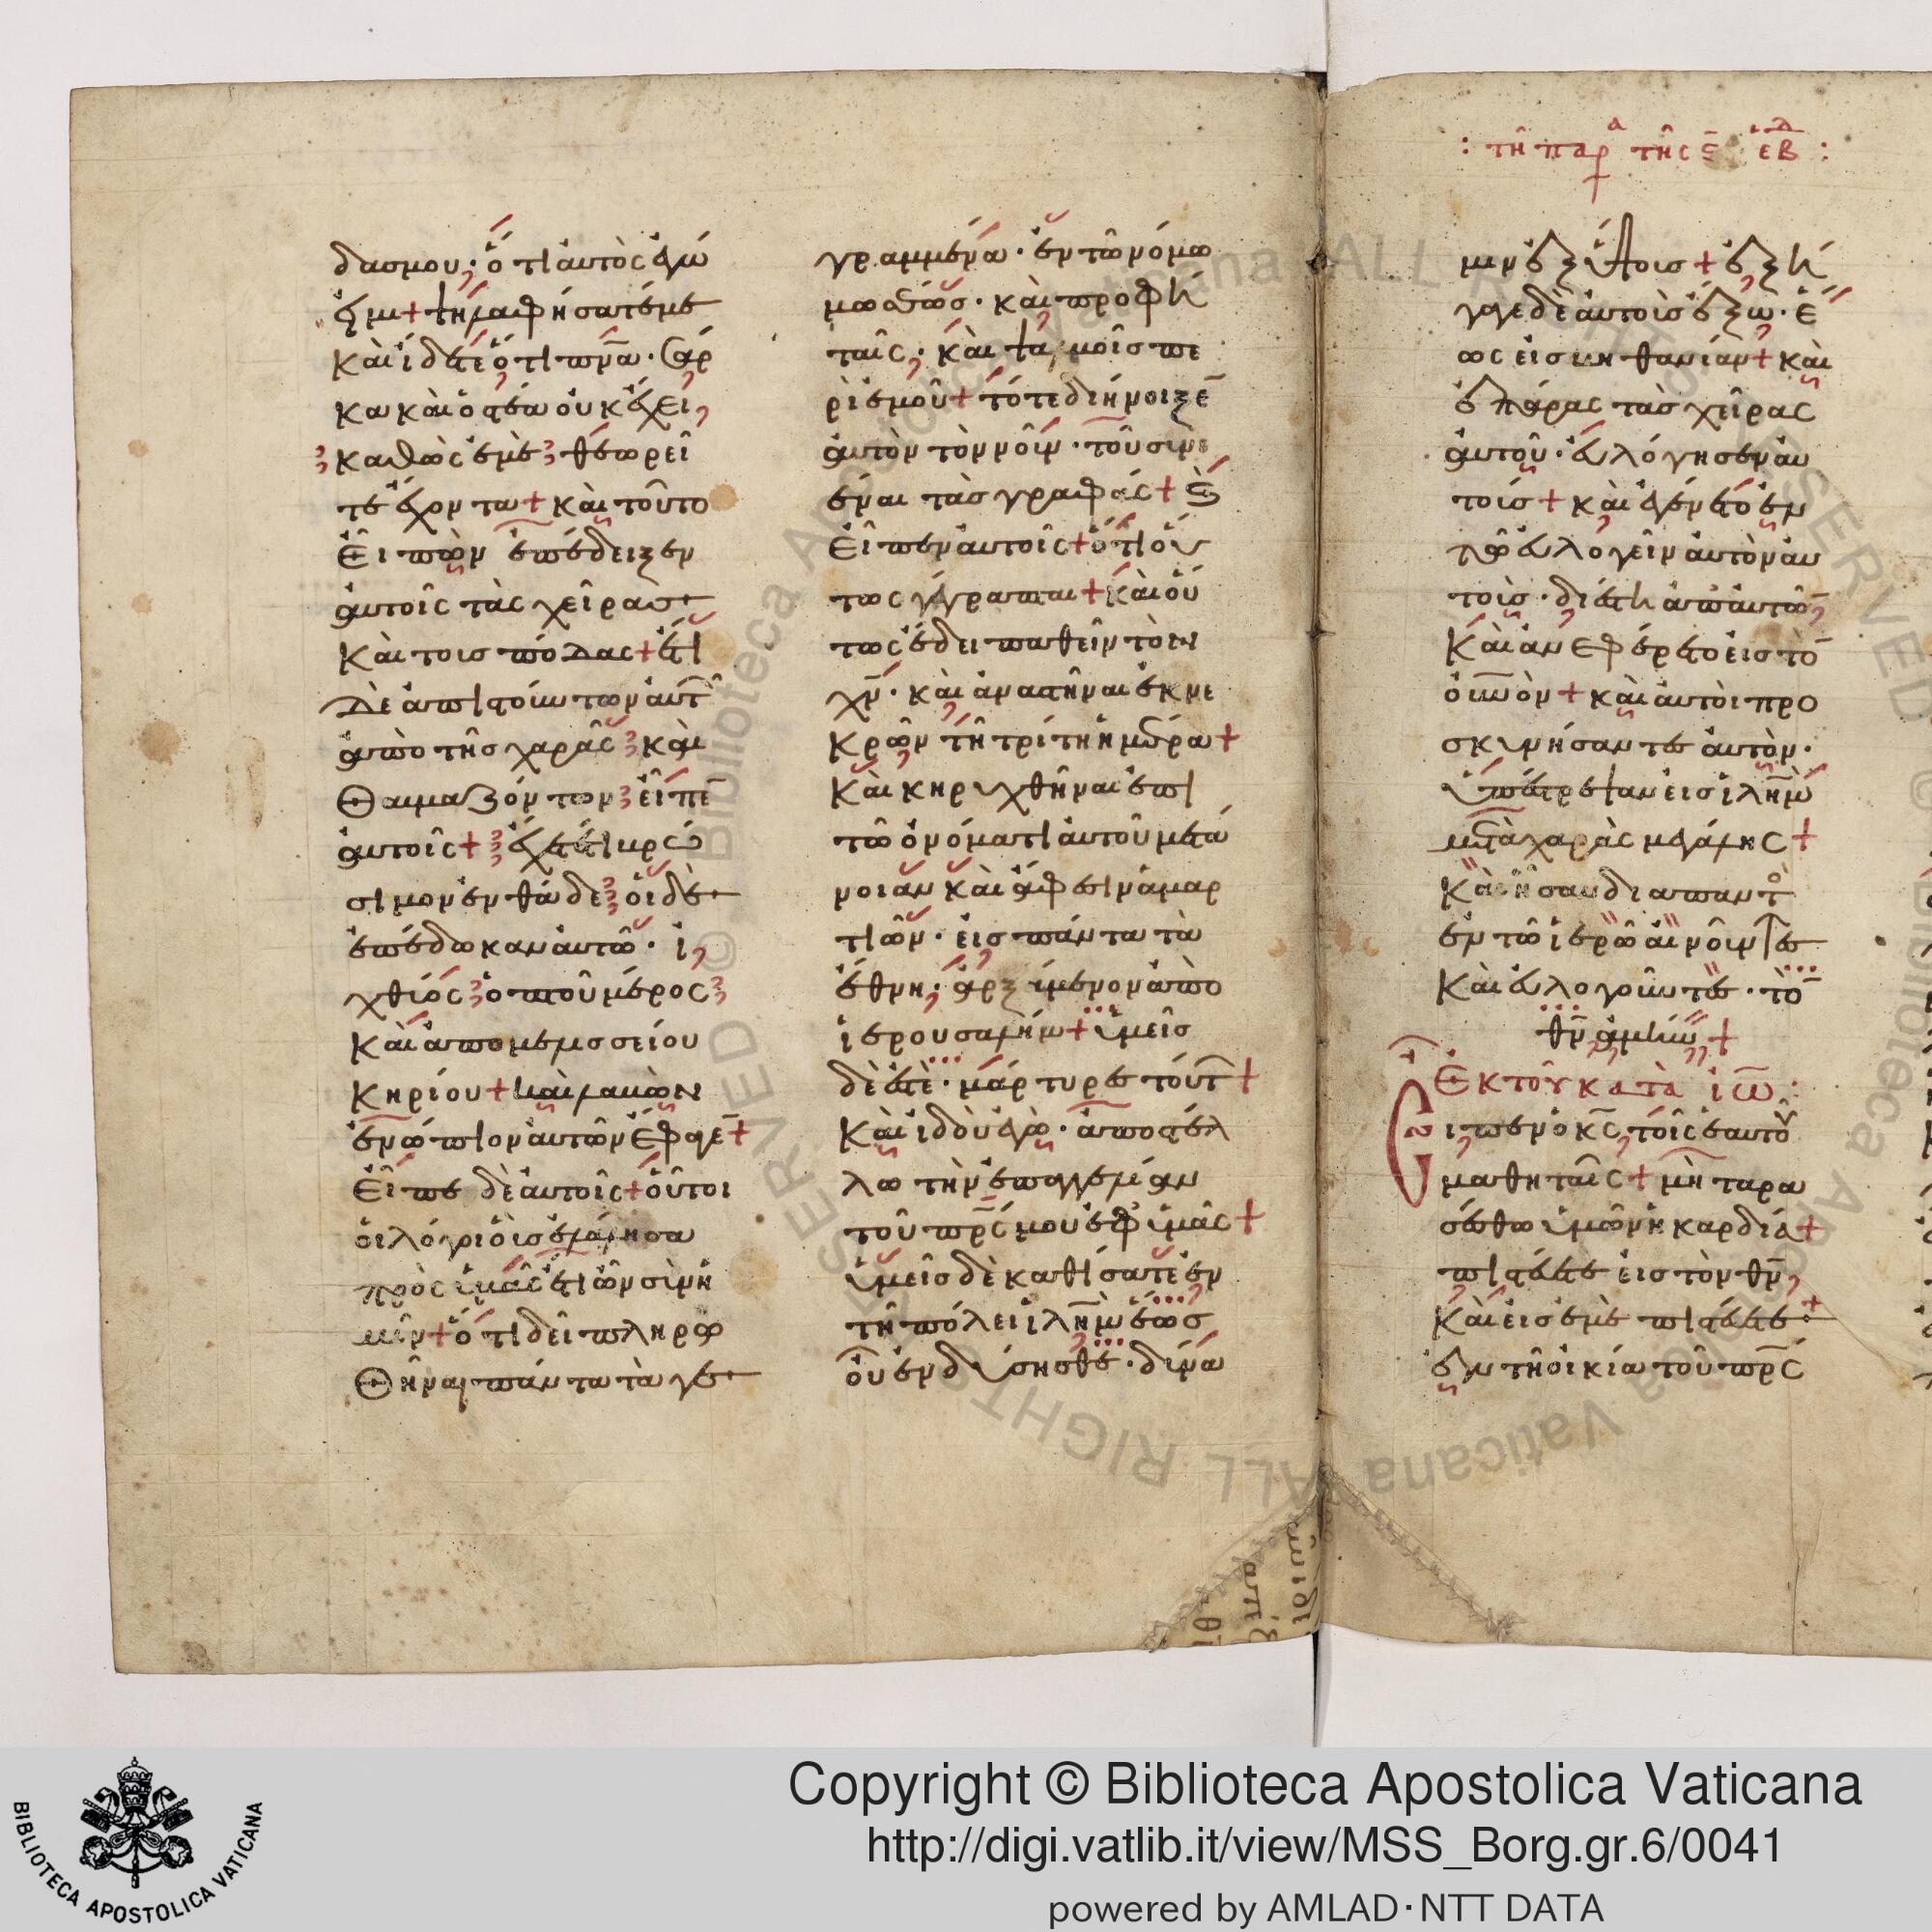 δασμου· ὅτι αὐτὸς ἐγώ
εἰμι + ψηλαφήσατέ με
καὶ ἴδετε ὅτι πνᾶ· σάρ
κα καὶ ὀστέα οὐκ ἔχει,
καθὼς ἐμὲ θεωρεῖ
τε ἔχοντα + καὶ τοῦτο
εἰπὼν ἐπέδειξεν
αὐτοῖς τὰς χεῖρας
καὶ τοις πόδας + ἔτι
δὲ ἀπιστούντων αὐτ
ἀπὸ τῆς χαρᾶς καὶ
θαυμαζόντων εἶπε
αὐτοῖς + ἔχετέ τι βρώ
σιμον ἐνθάδε οἱ δὲ
ἐπέδωκαν αὐτῶ· ἰ
χθύος ὀπτοῦ μέρος
καὶ ἀπο μελισσείου
κηρίου + καὶ λαβὼν
ἐνώπιον αὐτῶν ἔφαγε +
εἶπε δὲ αὐτοῖς + οὗτοι
οἱ λόγοι οἱς ἐλάλησα
πρὸς ὑμᾶς ἔτι ὢν σὺν ἡ
μῖν + ὅτι δεῖ πληρω
θῆναι πάντα τὰ γε
γραμμένα· ἐν τῶ νόμω
μωσέως· καὶ προφη
ταῖς· καὶ ψαλμοῖς πε
ρὶ ἐμοῦ + τότε διήνοιξε
αὐτὸν τὸν νοῦν· τοῦ συνι
έναι τὰς γραφάς + καὶ
εἶπεν αὐτοῖς + ὅτι οὕ
τως γέγραπται + καὶ οὕ
τως ἔδει παθεῖν τὸν
χν· καὶ ἀναστῆναι ἐκ νε
κρῶν τῆ τρίτη ἡμέρα +
καὶ κηρυχθῆναι ἐπὶ
τῶ ὀνόματι αὐτοῦ μετά
νοιαν καὶ ἄφεσιν ἁμαρ
τιῶν· εἰς πάντα τὰ
ἔθνη· ἀρξάμενον ἀπὸ
ἱερουσαλήμ + ὑμεῖς
δὲ ἐστὲ· μάρτυρες τούτ +
καὶ ἰδοὺ ἐγὼ· ἀποστέλ
λω τὴν ἐπαγγελίαν
τοῦ πρς μου ἐφ ὑμᾶς +
ὑμεῖς δὲ καθίσατε ἐν
τῆ πόλει ιλημ ἕως
οὗ ἐνδύσησθε· δύνα
: τῆ παρ τῆς ϛ εβδ :
μιν ἐξ ὕψους + ἐξή
γαγε δὲ αὐτοὺς ἔξω· ἕ
ως εἰς βηθανίαν + καὶ
ἐπάρας τὰς χεῖρας
αὐτοῦ· εὐλόγησεν αὐ
τούς + καὶ ἐγένετο ἐν
τῶ εὐλογεῖν αὐτὸν αὐ
τοὺς· διέστη ἀπ αὐτῶ
καὶ ἀνεφέρετο εἰς τὸ
οὐνὸν + καὶ αὐτοὶ προ
σκυνήσαντες αὐτὸν·
ὑπέστρεψαν εἰς ιλημ
μετὰ χαρὰς μεγάλης +
καὶ ἦσαν διαπαντὸ
ἐν τῶ ἱερῶ αἰνοῦντες
καὶ εὐλογοῦντες· τὸ
θν ἀμήν +
Ἐκ τοῦ κατὰ ἰω :
Εἶπεν ὁ κς τοῖς ἑαυτοῦ
μαθηταῖς + μὴ ταρα
σέσθω ὑμῶν ἡ καρδία +
πιστέυετε εἰς τὸν θν,
καὶ εἰς ἐμὲ πιστέυετε +
ἐν τῆ οἰκία τοῦ πρς
BIBLIOTECA APOSTOLICA VATICANA
Copyright © Biblioteca Apostolica Vaticana
http://digi.vatlib.it/view/MSS_Borg.gr.6/0041
powered by AMLAD·NTT DATA